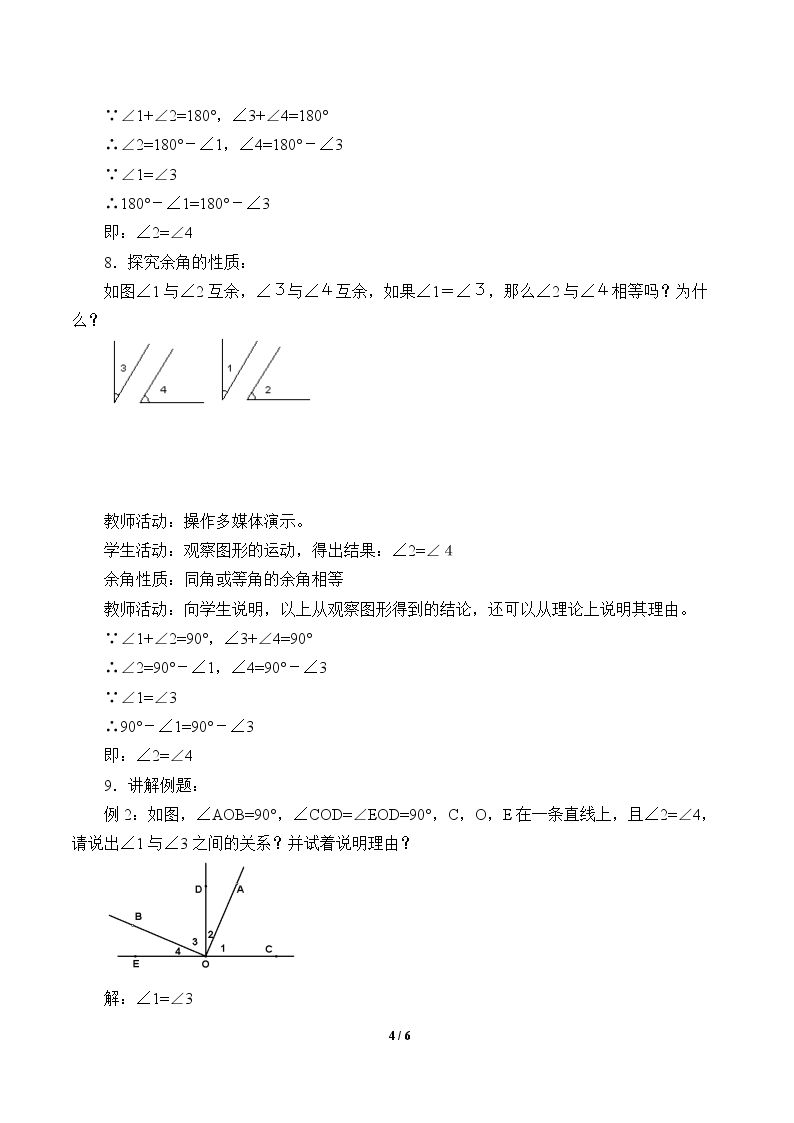 ∵∠1+∠2=180°，∠3+∠4=180°
∴∠2=180°－∠1，∠4=180°－∠3
∵∠1=∠3
∴180°－∠1=180°－∠3
即：∠2=∠4
8．探究余角的性质：
如图∠1与∠2互余，∠３与∠４互余，如果∠1＝∠３，那么∠2与∠４相等吗？为什
么？
3 4 1 2
教师活动：操作多媒体演示。
学生活动：观察图形的运动，得出结果：∠2=∠ 4
余角性质：同角或等角的余角相等
教师活动：向学生说明，以上从观察图形得到的结论，还可以从理论上说明其理由。
∵∠1+∠2=90°，∠3+∠4=90°
∴∠2=90°－∠1，∠4=90°－∠3
∵∠1=∠3
∴90°－∠1=90°－∠3
即：∠2=∠4
9．讲解例题：
例 2：如图，∠AOB=90°，∠COD=∠EOD=90°，C，O，E在一条直线上，且∠2=∠4，
请说出∠1与∠3之间的关系？并试着说明理由？
D A
B
3 2
4 1 C
E O
解：∠1=∠3
4 / 6